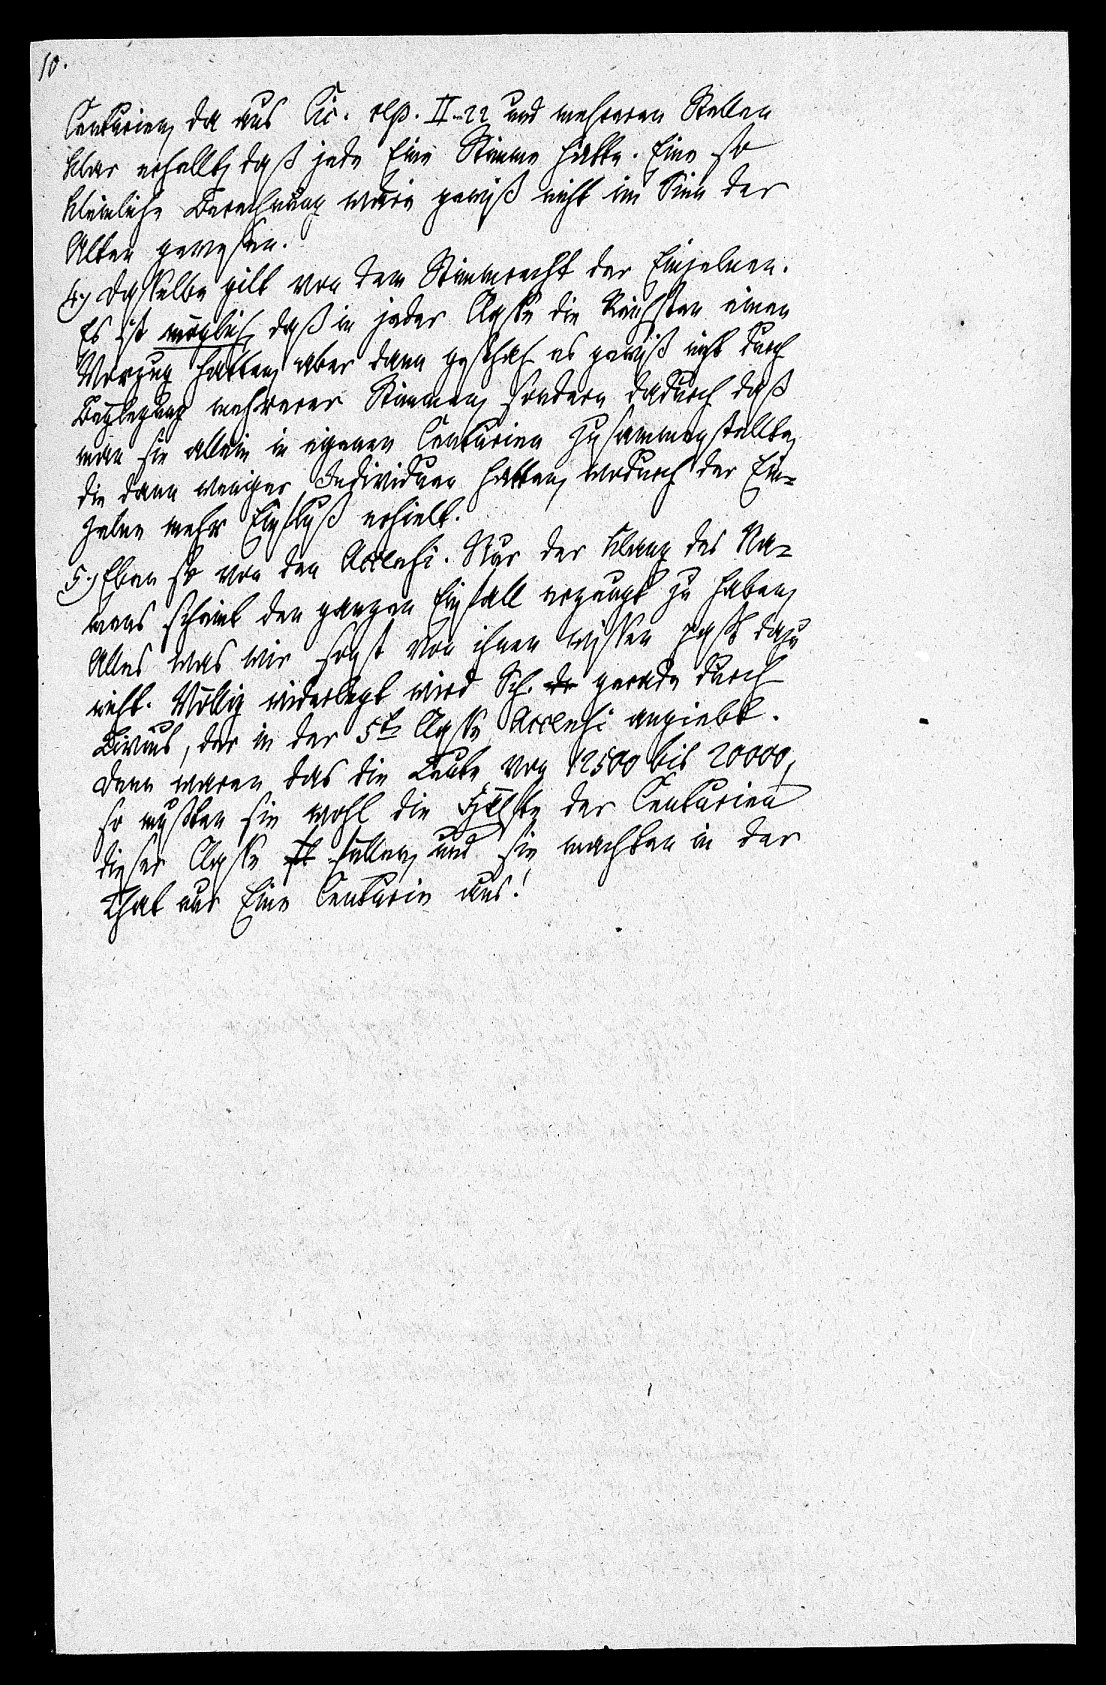 10.
Centurien, da aus Cic. rep. II-22 und mehreren Stellen
klar erhellt, daß jede Eine Stimme hatte. Eine so
kleinliche Berechnung wäre gewiß nicht im Sinn der
Alten gewesen.
4.) Dasselbe gilt von dem Stimmrecht der Einzelnen.
Es ist möglich, daß in jeder Classe die Reichsten einen
Vorzug hatten, aber dann geschah es gewiß nicht durch
Beylegung mehrerer Stimmen, sondern dadurch daß
man sie allein in eigenen Centurien zusammenstellte,
die dann weniger Individuen hatten, wodurch der Ein=
zelne mehr Einfluß erhielt.
5.) Eben so von den Accensi. Nur der Klang des Na=
mens scheint den ganzen Einfall erzeugt zu haben,
Alles was wir sonst von ihnen wissen paßt dazu
nicht. Völlig widerlegt wird Sch. de gerade durch
Livius, der in der 5t Classe Accensi angiebt.
Denn waren das die Leute von 12500 bis 20000,
so mußten sie wohl die Hälfte der Centurien
dieser Classe st füllen, und sie machten in der
That nur Eine Centurie aus!